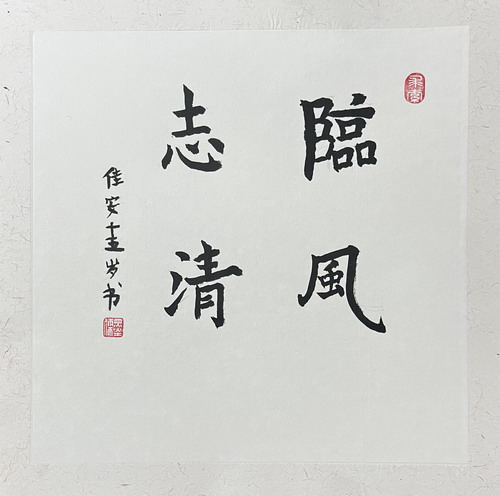 臨風
志清
佳安十五岁书